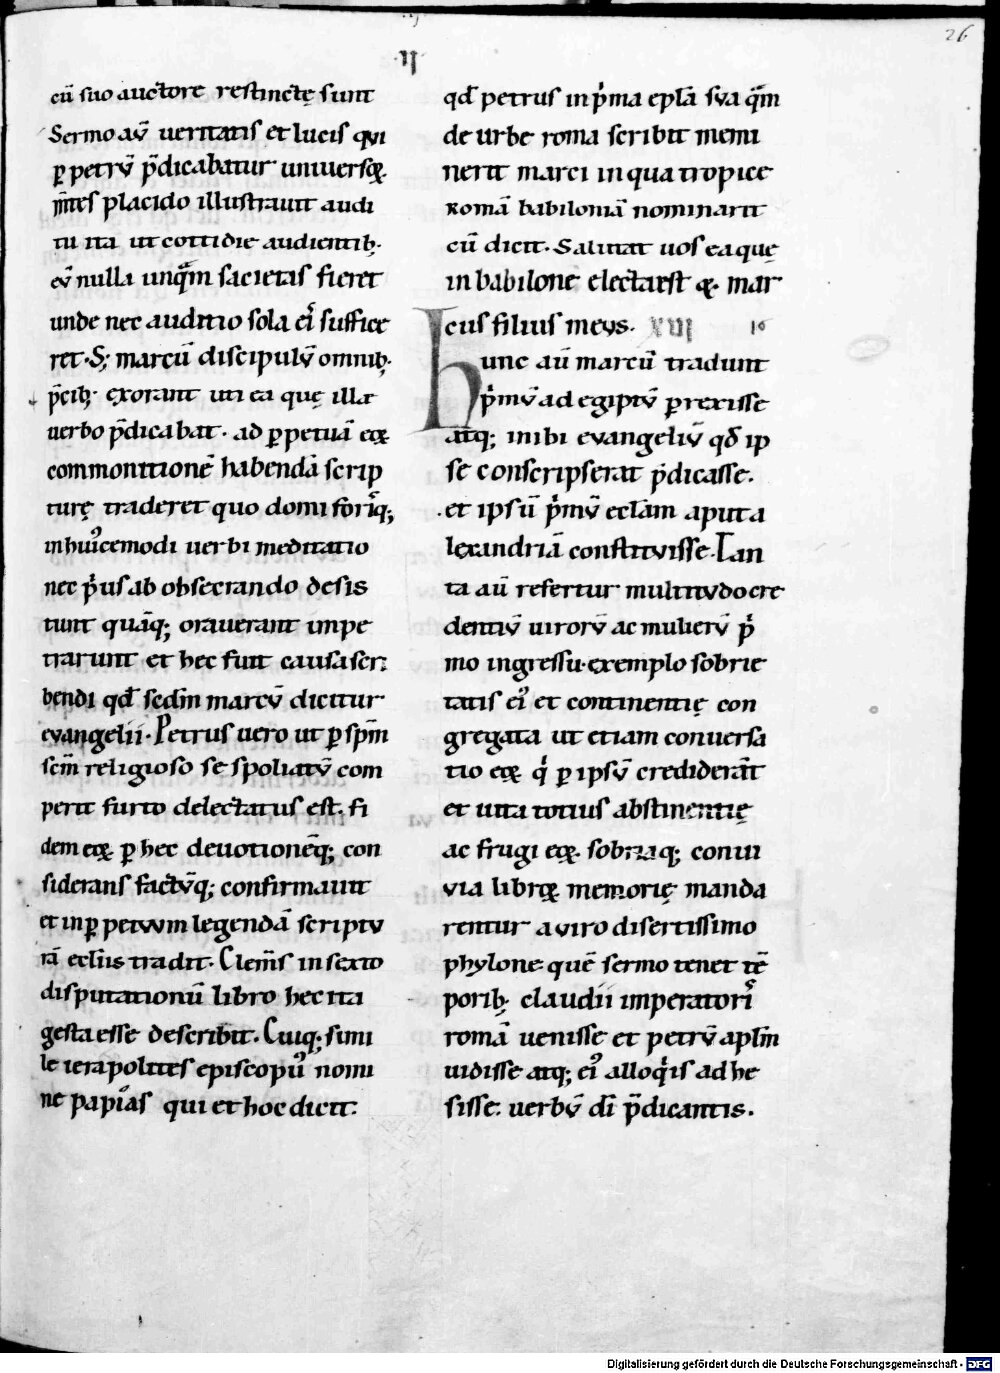 26
·II·
cū suo auctore restinctę sunt
Sermo aū ueritatis et lucis qui
ꝑ petrū p̄dicabatur uniuersoꝝ
m̄tes placido illustrauit audi
tu ita ut cottidie audientib;
eū nulla unqͣm sacietas fieret
unde nec auditio sola eiꝰ suffice
ret. S; marcū discipulū omnib;
p̄cib; exorant uti ea quę ille
uerbo p̄dicabat. ad ꝑpetuā eoꝝ
commonitionē habendā scrip
turę traderet quo domi forisq;
in huiꝰcemodi uerbi meditatio
nec pͥus ab obsecrando desis
tunt quāq; orauerant impe
trarunt et hec fuit causa scri
bendi qđ secdm marcū dicitur
euangelii. Petrus uero ut ꝑ spm̄
scm̄ religioso se spoliatū com
perit furto delectatus est. fi
dem eoꝝ ꝑ hec deuotionēq; con
siderans factūq; confirmauit
et in ꝑpetuum legendā scriptu
rā eccliis tradit. Clem̄s in sexto
disputationū libro hec ita
gesta esse describit. Cuiq; simi
le ierapolites episcopus nomi
ne papias qui et hoc dicit.
qđ petrus in pͥma epla sua qͣm
de urbe roma scribit memi
nerit marci in qua tropice
romā babiloniā nominarit
cū dicit. Salutat uos ea quę
in babilone electa est & mar
cus filius meus. XIII 16
hunc aū marcū tradunt
pͥmū ad egiptū ꝑrexisse
atq; inibi euangeliū qđ ip
se conscripserat p̄dicasse.
et ipsū pͥmū ecclam aput a
lexandriā constituisse. Tan
ta aū refertur multitudo cre
dentiū uirorū ac mulierū pͥ
mo ingressu. exemplo sobrie
tatis eiꝰ et continentię con
gregata ut etiam conuersa
tio eoꝝ qͥ ꝑ ipsū crediderāt
et uita totius abstinentię
ac frugi eoꝝ. sobriaq; conui
uia libroꝝ memorię manda
rentur a uiro disertissimo
phylone. quē sermo tenet tē
porib; claudii imperatoris
romā uenisse et petrū aplm
uidisse atq; eiꝰ alloqͥis adhe
sisse. uerbū di p̄dicantis.
Digitalisierung gefördert durch die Deutsche Forschungsgemeinschaft - DFG